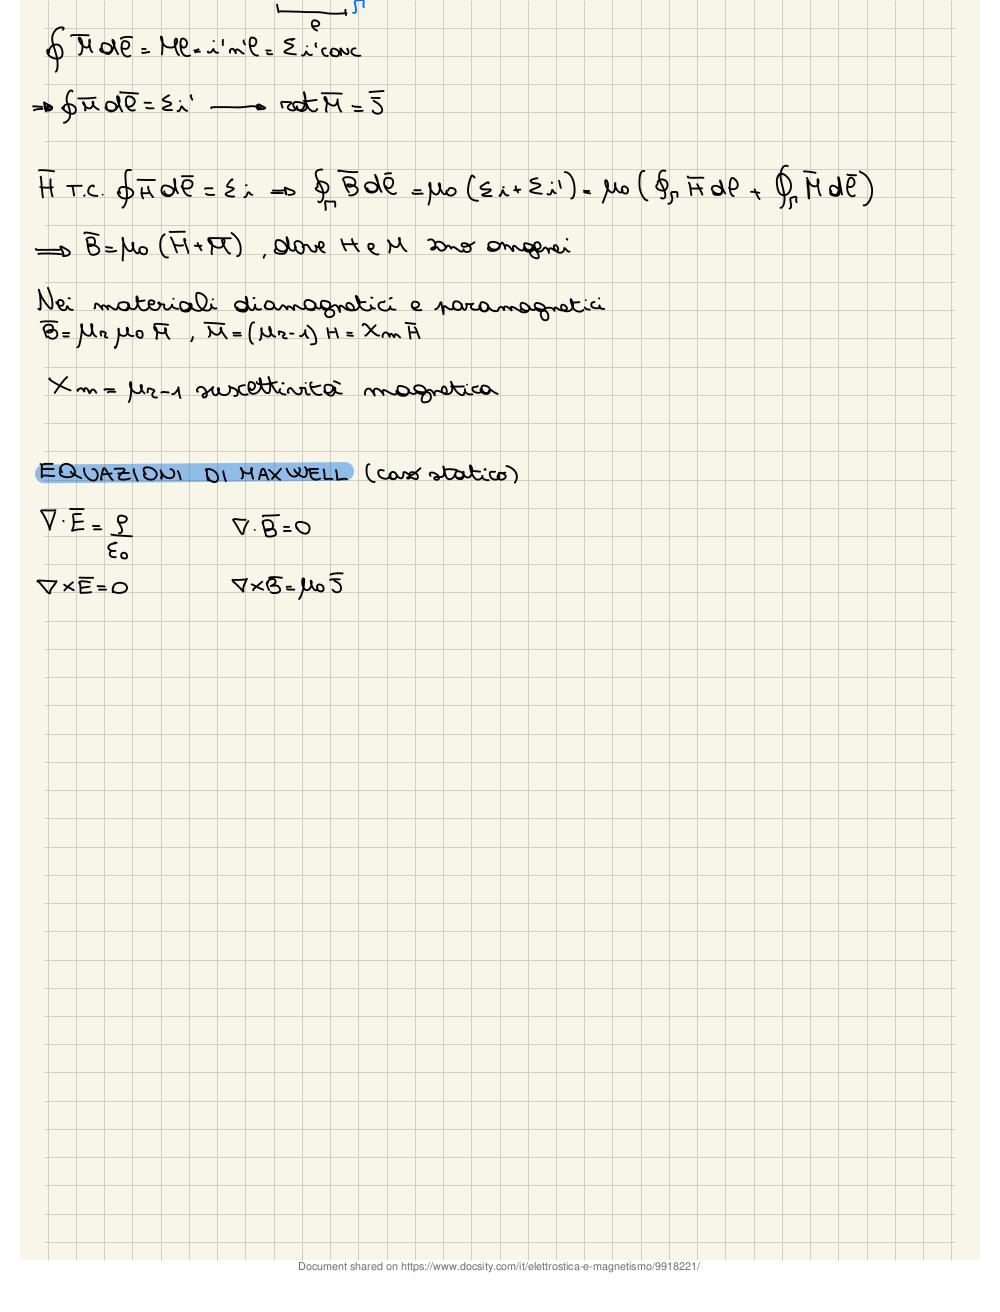 ℓ Γ
∮ M̅ dℓ̅ = Mℓ = i'n'ℓ = Σ i'conc
⇒ ∮ M̅ dℓ̅ = Σ i' ⟶ rot M̅ = J̅
H̅ T.C. ∮ H̅ dℓ̅ = Σ i ⇒ ∮_Γ B̅ dℓ̅ = μ₀ (Σ i + Σ i') = μ₀ ( ∮_Γ H̅ dℓ + ∮_Γ M̅ dℓ̅ )
⟹ B̅ = μ₀ (H̅ + M̅) , dove H e M sono omogenei
Nei materiali diamagnetici e paramagnetici
B̅ = μr μ₀ H̅ , M̅ = (μr-1) H = Xm H̅
Xm = μr-1 suscettività magnetica
EQUAZIONI DI MAXWELL (caso statico)
∇·E̅ = ρ/ε₀ ∇·B̅ = 0
∇×E̅ = 0 ∇×B̅ = μ₀ J̅
Document shared on https://www.docsity.com/it/elettrostica-e-magnetismo/9918221/